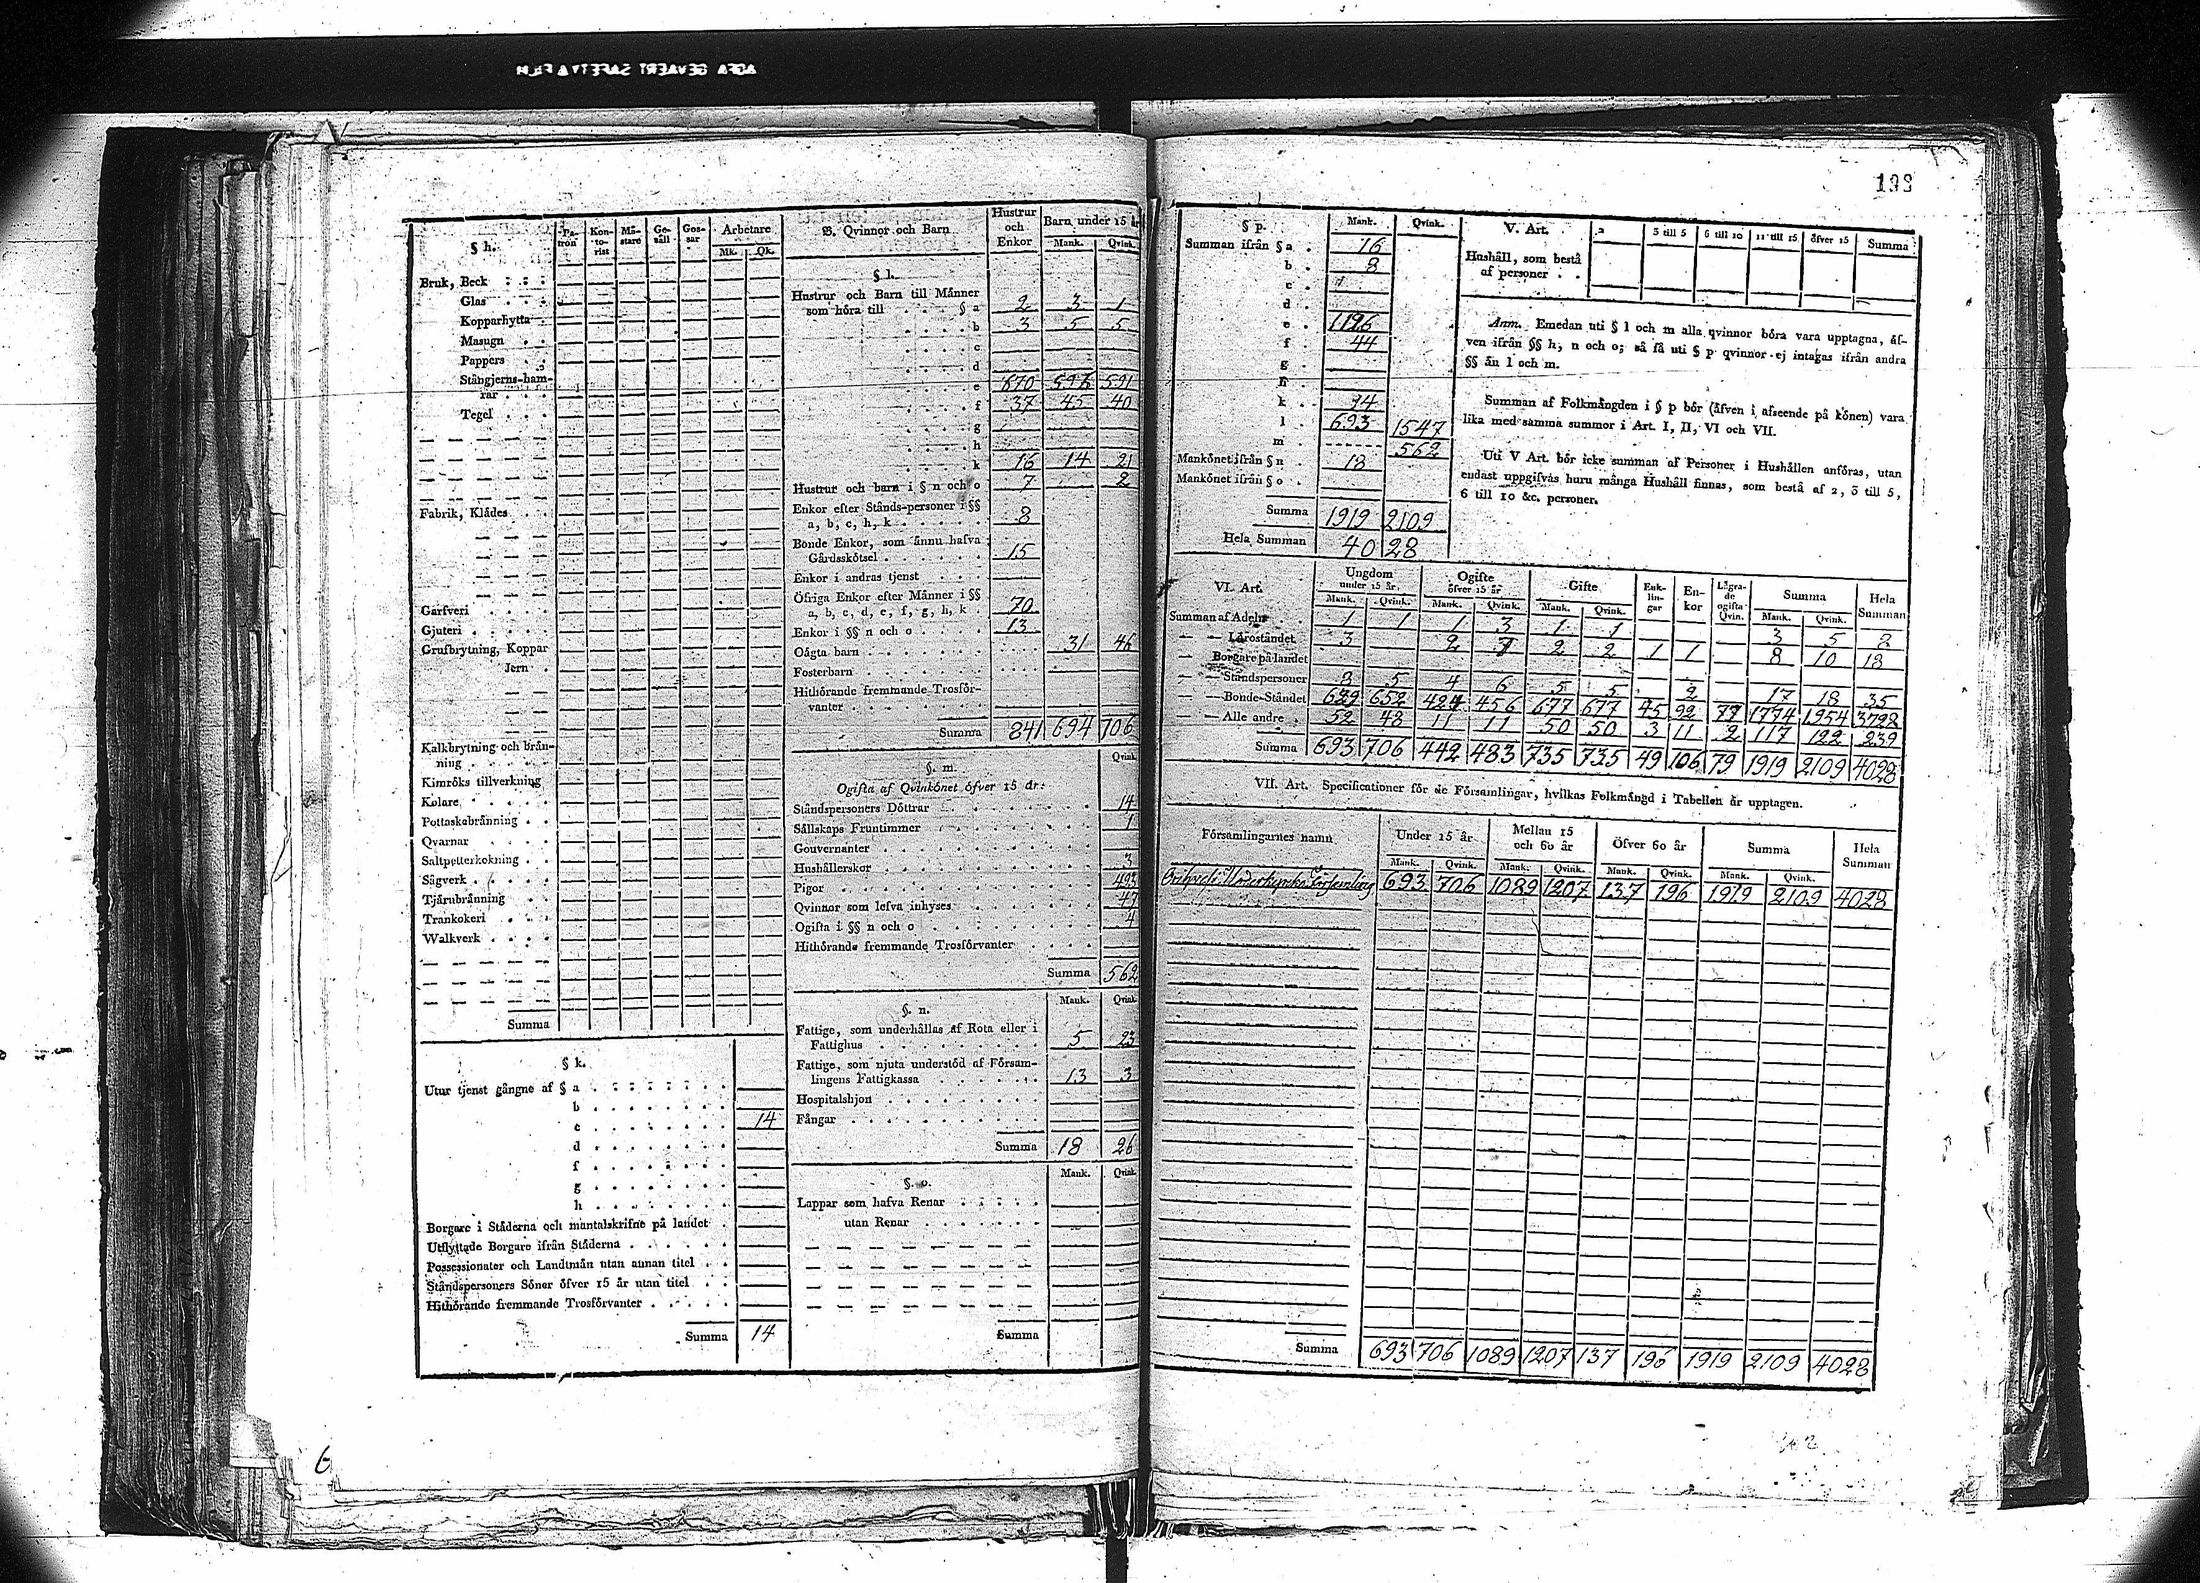 AGFA GEVAERT SAFETY FILM
§ h.
Pa-
tron
Kon-
to-
rist
Mä-
stare
Ge-
säll
Gos-
sar
Arbetare
Mk.
Qk.
Bruk, Beck
Glas
Kopparhytta
Masugn
Pappers
Stångjerns-ham-
rar
Tegel
Fabrik, Klådes
Garfveri
Gjuteri
Grufbrytning, Koppar
Jern
Kalkbrytning och brån-
ning
Kimröks tillverkning
Kolare
Pottaskebrånning
Qvarnar
Saltpetterkokning
Sågverk
Tjårubrånning
Trankokeri
Walkverk
Summa
§ k.
Utur tjenst gångne af § a
b
c 14
d
f
g
h
Borgare i Ståderna och mantalskrifne på landet
Utflyttade Borgare ifrån Ståderna
Possessionater och Landtmån utan annan titel
Ståndspersoners Söner öfver 15 år utan titel
Hithörande fremmande Trosförvanter
Summa 14
6
B. Qvinnor och Barn
Hustrur
och
Enkor
Barn under 15 år
Mank. Qvink.
§ l.
Hustrur och Barn till Månner
som höra till § a 2 3 1
b 3 5 5
c
d
e 670 596 591
f 37 45 40
g
h
k 16 14 21
Hustrur och barn i § n och o 7 2
Enkor efter Stånds-personer i §§
a, b, c, h, k 8
Bonde Enkor, som ånnu hafva
Gårdsskötsel 15
Enkor i andras tjenst
Öfriga Enkor efter Månner i §§
a, b, c, d, e, f, g, h, k 70
Enkor i §§ n och o 13
Oågta barn 31 46
Fosterbarn
Hithörande fremmande Trosför-
vanter
Summa 841 694 706
§. m.
Qvink.
Ogifta af Qvinkönet öfver 15 år:
Ståndspersoners Döttrar 14
Sållskaps Fruntimmer 1
Gouvernanter
Hushållerskor 3
Pigor 493
Qvinnor som lefva inhyses 47
Ogifta i §§ n och o 4
Hithörande fremmande Trosförvanter
Summa 562
§. n.
Mank. Qvink.
Fattige, som underhållas af Rota eller i
Fattighus 5 23
Fattige, som njuta understöd af Försam-
lingens Fattigkassa 13 3
Hospitalshjon
Fångar
Summa 18 26
§. o.
Mank. Qvink.
Lappar som hafva Renar
utan Renar
Summa
§ p.
Mank. Qvink.
Summan ifrån § a 16
b 8
c
d
e 1126
f 44
g
h
k 14
l 693 1547
m 562
Mankönet ifrån § n 18
Mankönet ifrån § o
Summa 1919 2109
Hela Summan 4028
V. Art.
2
3 till 5
6 till 10
11 till 15
öfver 15
Summa
Hushåll, som bestå
af personer
Anm. Emedan uti § l och m alla qvinnor böra vara upptagna, åf-
ven ifrån §§ h, n och o; så få uti § p qvinnor ej intagas ifrån andra
§§ ån l och m.
Summan af Folkmångden i § p bör (åfven i afseende på könen) vara
lika med samma summor i Art. I, II, VI och VII.
Uti V Art. bör icke summan af Personer i Hushållen anföras, utan
endast uppgifvas huru många Hushåll finnas, som bestå af 2, 3 till 5,
6 till 10 &c. personer.
VI. Art.
Ungdom
under 15 år
Ogifte
öfver 15 år
Gifte
Enk-
lin-
gar
En-
kor
Lågra-
de
ogifta
Qvin.
Summa
Hela
Summan
Mank. Qvink. Mank. Qvink. Mank. Qvink. Mank. Qvink.
Summan af Adeln 1 1 1 3 1 1 3 5
— — Låroståndet 3 2 7 2 2 1 1 8 10 18
— Borgare på landet
— — Ståndspersoner 8 5 4 6 5 5 2 17 18 35
— — Bonde-Ståndet 629 652 424 456 677 677 45 92 77 1774 1954 3728
— — Alle andre 52 48 11 11 50 50 3 11 2 117 122 239
Summa 693 706 442 483 735 735 49 106 79 1919 2109 4028
VII. Art. Specificationer för de Församlingar, hvilkas Folkmångd i Tabellen år upptagen.
Församlingarnes namn
Under 15 år
Mellan 15
och 60 år
Öfver 60 år
Summa
Hela
Summan
Mank. Qvink. Mank. Qvink. Mank. Qvink. Mank. Qvink.
Moderkyrko Församling 693 706 1089 1207 137 196 1919 2109 4028
Summa 693 706 1089 1207 137 196 1919 2109 4028